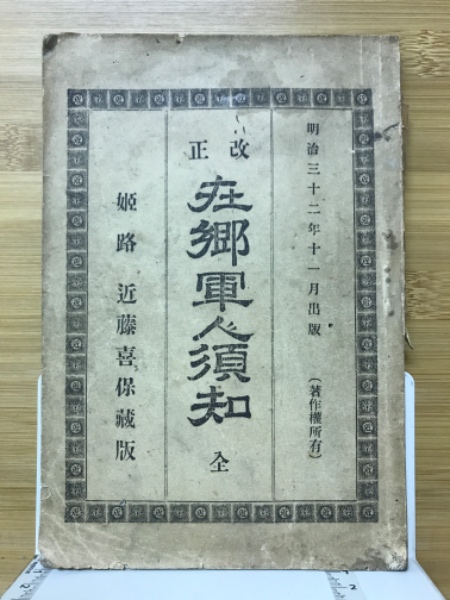 明治三十二年十一月出版 (著作權所有)
改正
在郷軍人須知 全
姫路 近藤喜保藏版